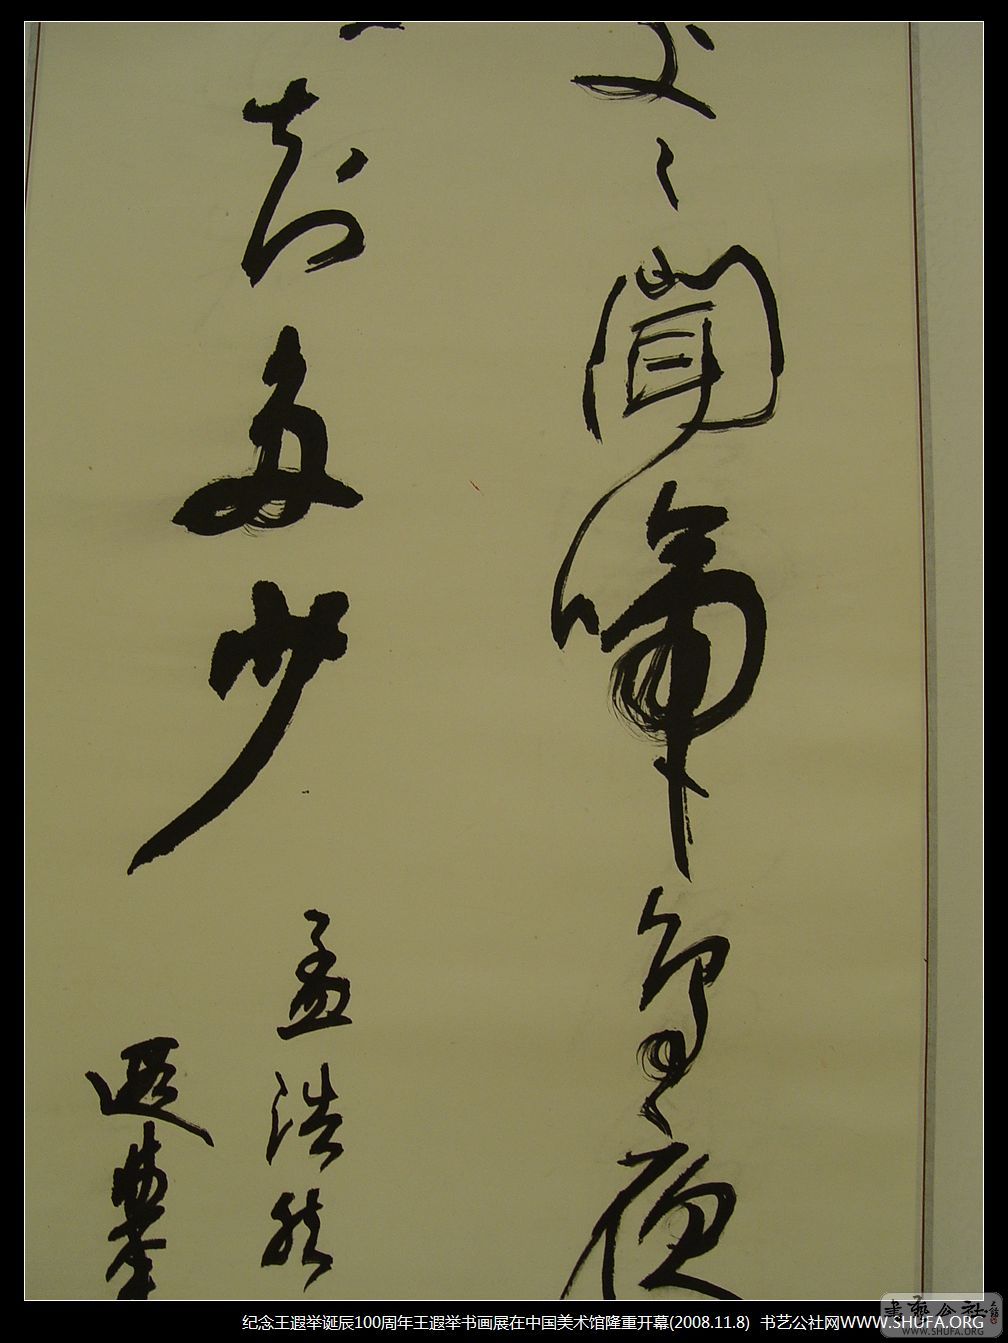 处々聞啼鳥夜
知多少
孟浩然
遐举
纪念王遐举诞辰100周年王遐举书画展在中国美术馆隆重开幕(2008.11.8) 书艺公社网WWW.SHUFA.ORG
書藝公社
WWW.SHUFA.ORG